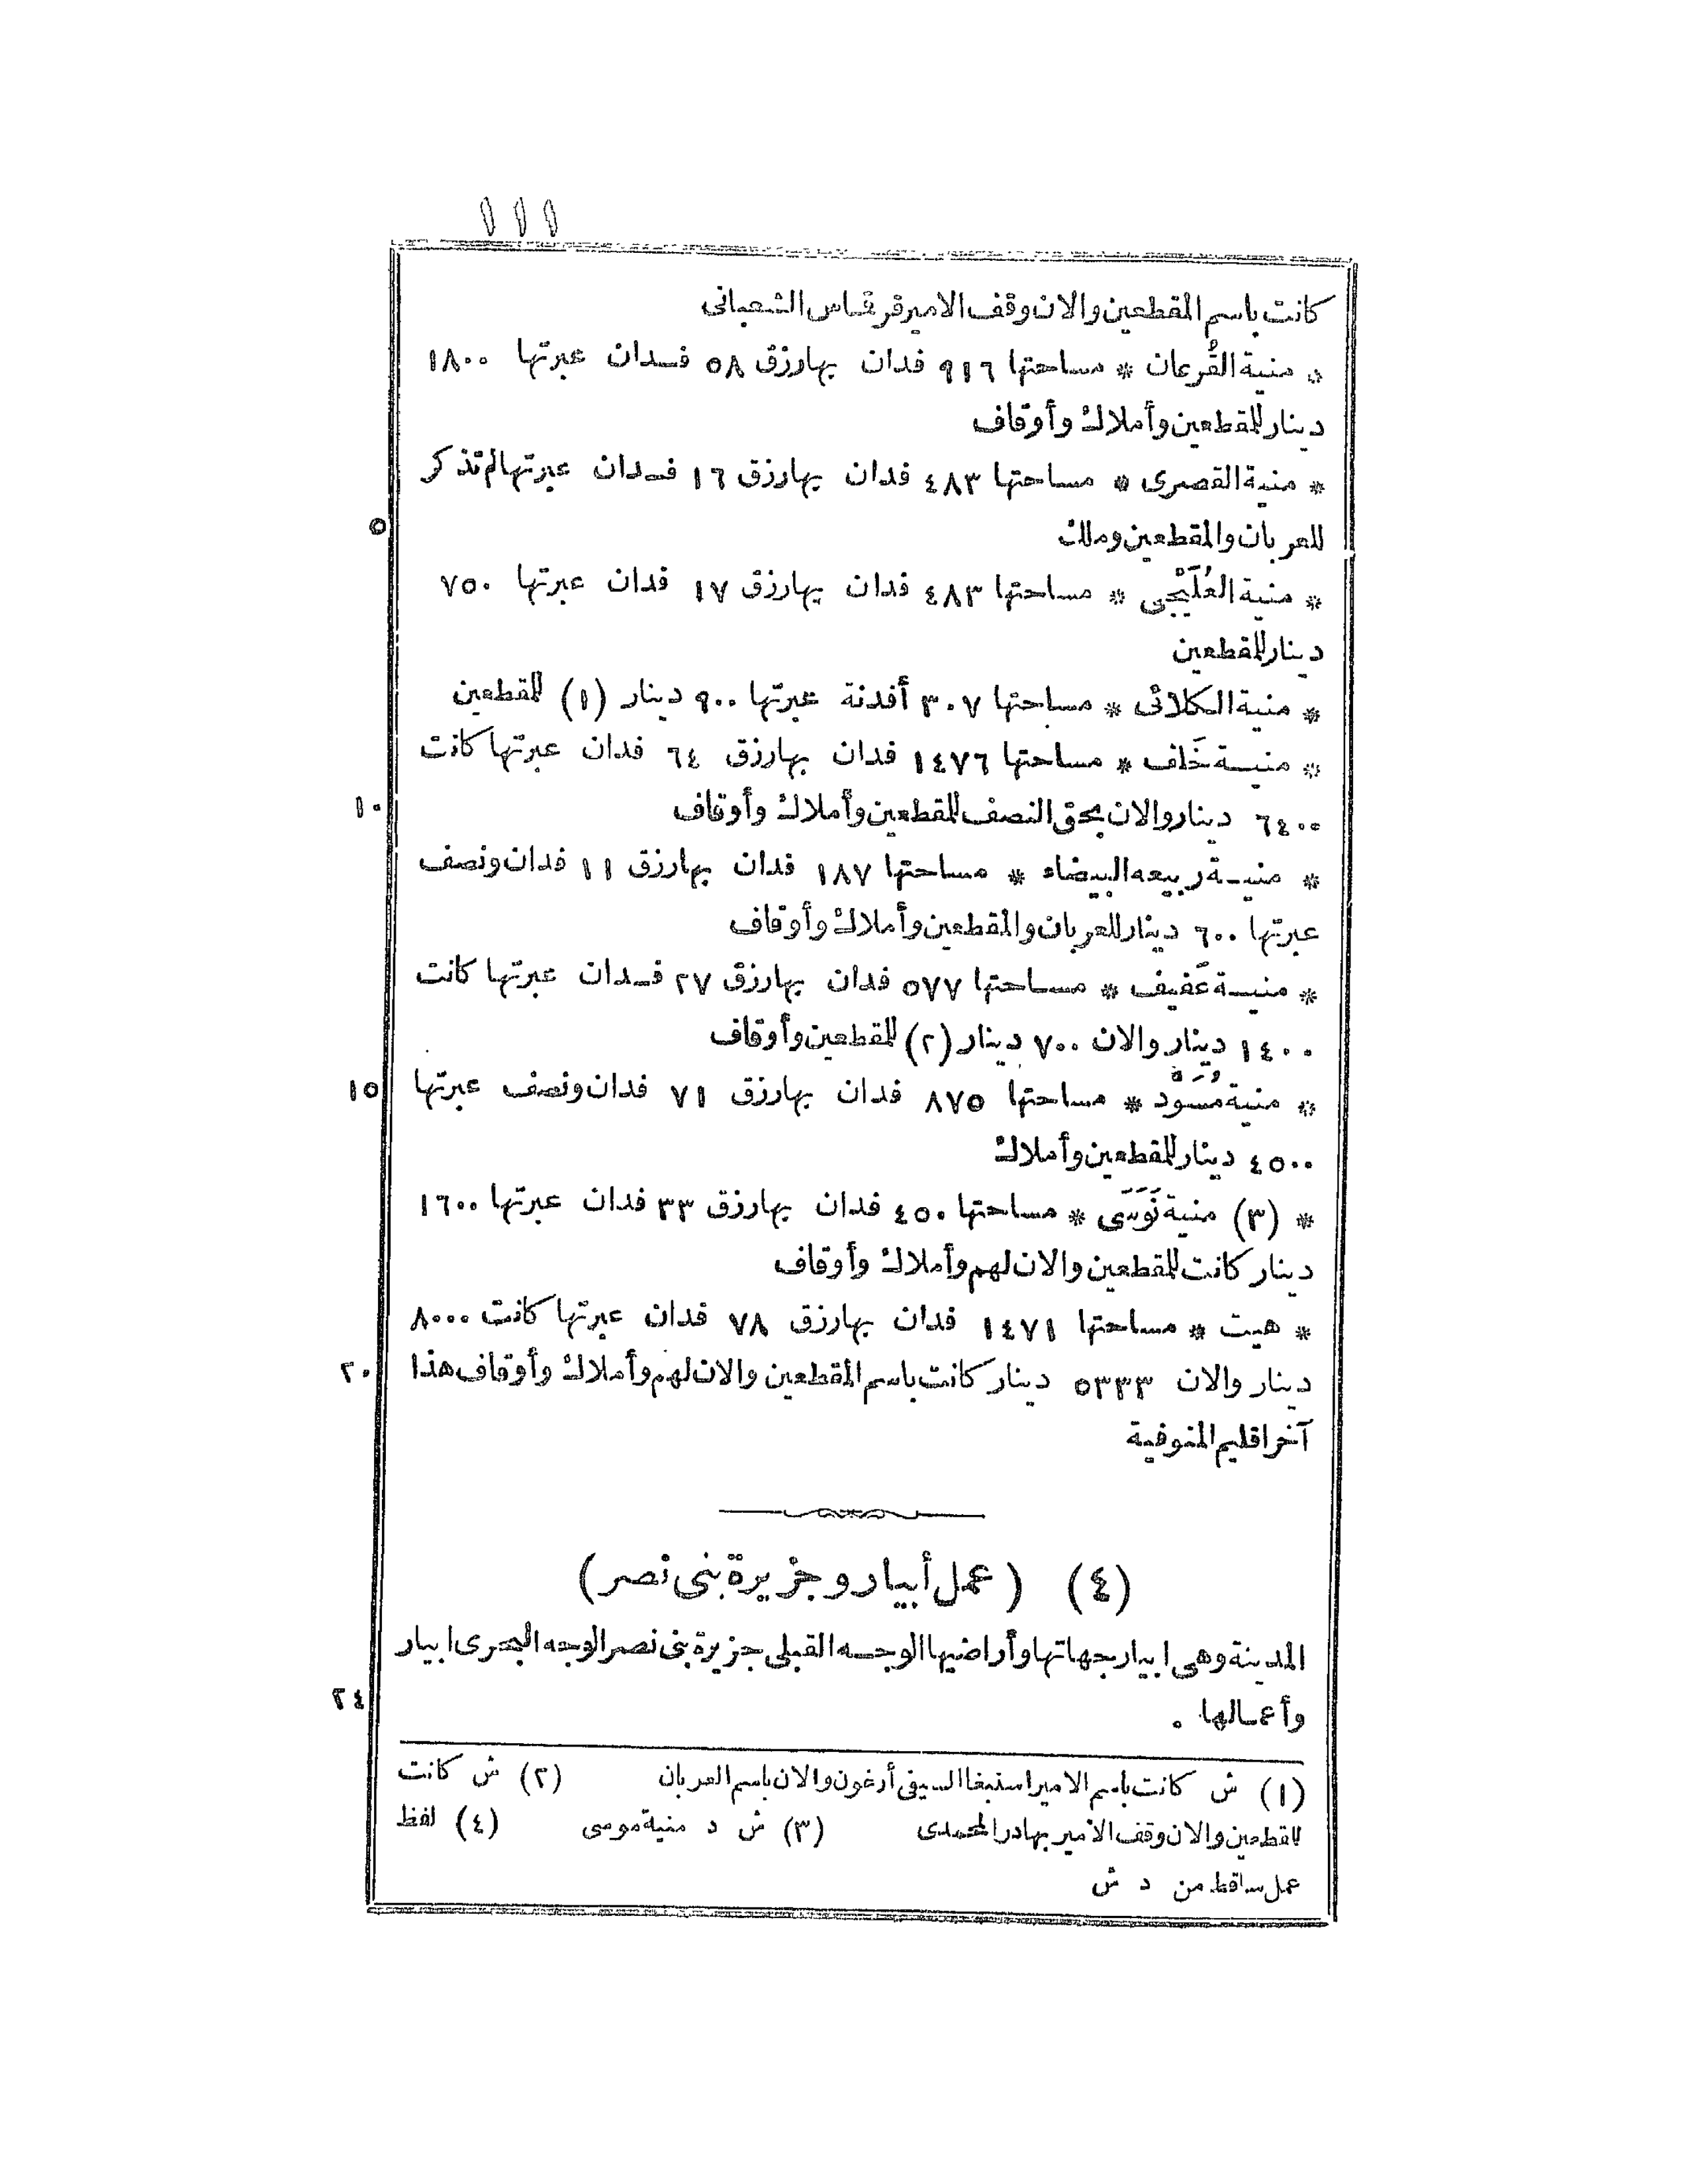 ١١١
كانت باسم المقطعين والان وقف الامير قرقماس الشعبانى
* منية القُرعان * مساحتها ٩١٦ فدان بهارزق ٥٨ فدان عبرتها ١٨٠٠
دينار للمقطعين وأملاك وأوقاف
* منية القصرى * مساحتها ٤٨٣ فدان بهارزق ١٦ فدان عبرتها لم تذكر
٥
للعربان والمقطعين وملك
* منية العُلَيْجى * مساحتها ٤٨٣ فدان بهارزق ١٧ فدان عبرتها ٧٥٠
دينار للمقطعين
* منية الكلائى * مساحتها ٣٠٧ أفدنة عبرتها ٩٠٠ دينار (١) للمقطعين
* منية خَلف * مساحتها ١٤٧٦ فدان بهارزق ٦٤ فدان عبرتها كانت
١٠
٦٤٠٠ دينار والان بحق النصف للمقطعين وأملاك وأوقاف
* منية ربيعه البيضاء * مساحتها ١٨٧ فدان بهارزق ١١ فدان ونصف
عبرتها ٦٠٠ دينار للعربان والمقطعين وأملاك وأوقاف
* منية عَفيف * مساحتها ٥٧٧ فدان بهارزق ٢٧ فدان عبرتها كانت
١٤٠٠ دينار والان ٧٠٠ دينار (٢) للمقطعين وأوقاف
١٥
* منية مُسَوْد * مساحتها ٨٧٥ فدان بهارزق ٧١ فدان ونصف عبرتها
٤٥٠٠ دينار للمقطعين وأملاك
* (٣) منية نَوَسَى * مساحتها ٤٥٠ فدان بهارزق ٣٣ فدان عبرتها ١٦٠٠
دينار كانت للمقطعين والان لهم وأملاك وأوقاف
* هيت * مساحتها ١٤٧١ فدان بهارزق ٧٨ فدان عبرتها كانت ٨٠٠٠
٢٠
دينار والان ٥٣٣٣ دينار كانت باسم المقطعين والان لهم وأملاك وأوقاف هذا
آخر اقليم المنوفية
(٤) (عمل أبيار وجزيرة بنى نصر)
المدينة وهى ابيار بجهاتها وأراضيها الوجه القبلى جزيرة بنى نصر الوجه البحرى ابيار
٢٤
وأعمالها .
(١) ش كانت باسم الامير اسنبغا السيفى أرغون والان باسم العربان (٢) ش كانت
للمقطعين والان وقف الأمير بهادر المحمدى (٣) ش د منية موسى (٤) لفظ
عمل ساقط من د ش